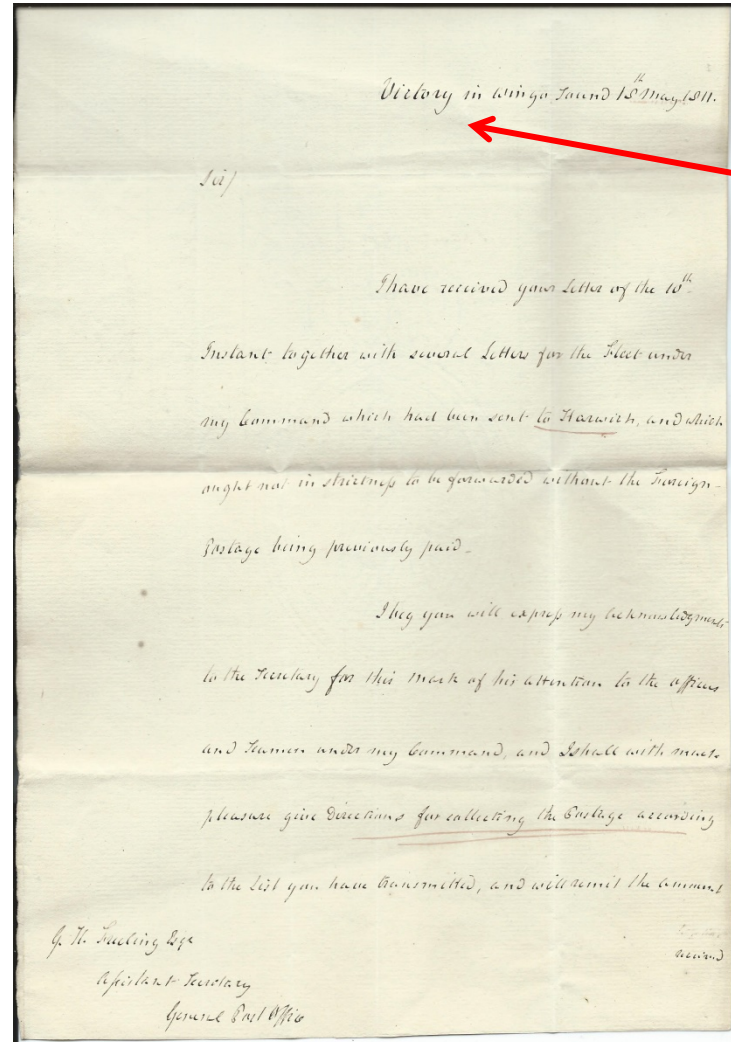 Victory in Wingo Sound 18th May 1811.
Sir/
I have received your Letter of the 10th
Instant together with several Letters for the Fleet under
my Command which had been sent to Harwich, and which
ought not in strictness to be forwarded without the Foreign
Postage being previously paid_
I beg you will express my acknowledgments
to the Secretary for this mark of his attention to the officers
and Seamen under my Command, and I shall with much
pleasure give Directions for collecting the Postage according
to the List you have transmitted, and will remit the amount
received
G. H. Freeling Esqr
Assistant Secretary
General Post Office